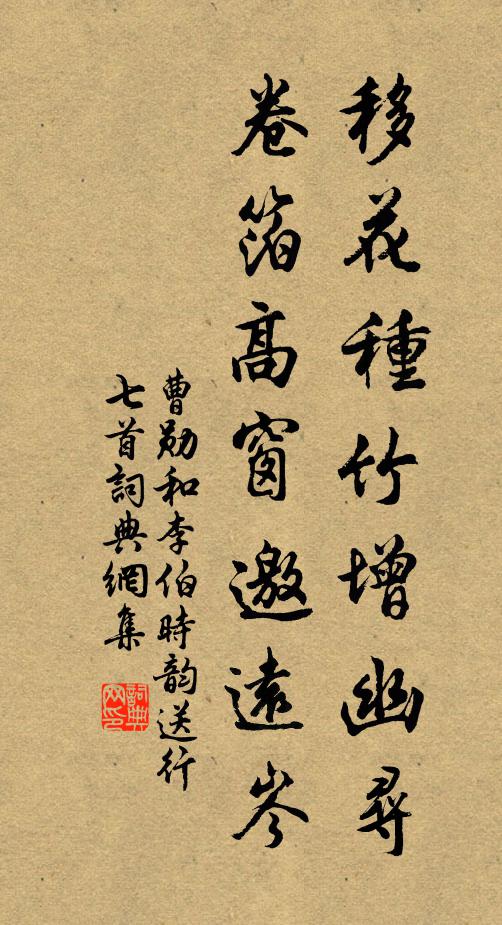 移花種竹增幽尋
卷箔高窗邀遠岑
曹勛和李伯時韵送行
七首詞典網集
詞典
网印